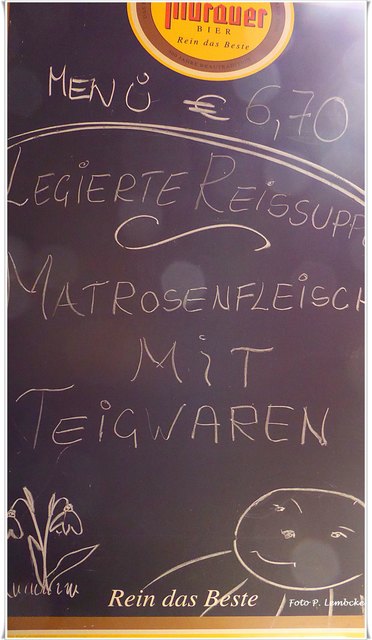 Murauer
BIER
Rein das Beste
MENÜ € 6,70
LEGIERTE REISSUPP
MATROSENFLEISCH
MIT
TEIGWAREN
Rein das Beste
Foto P. Lembcke